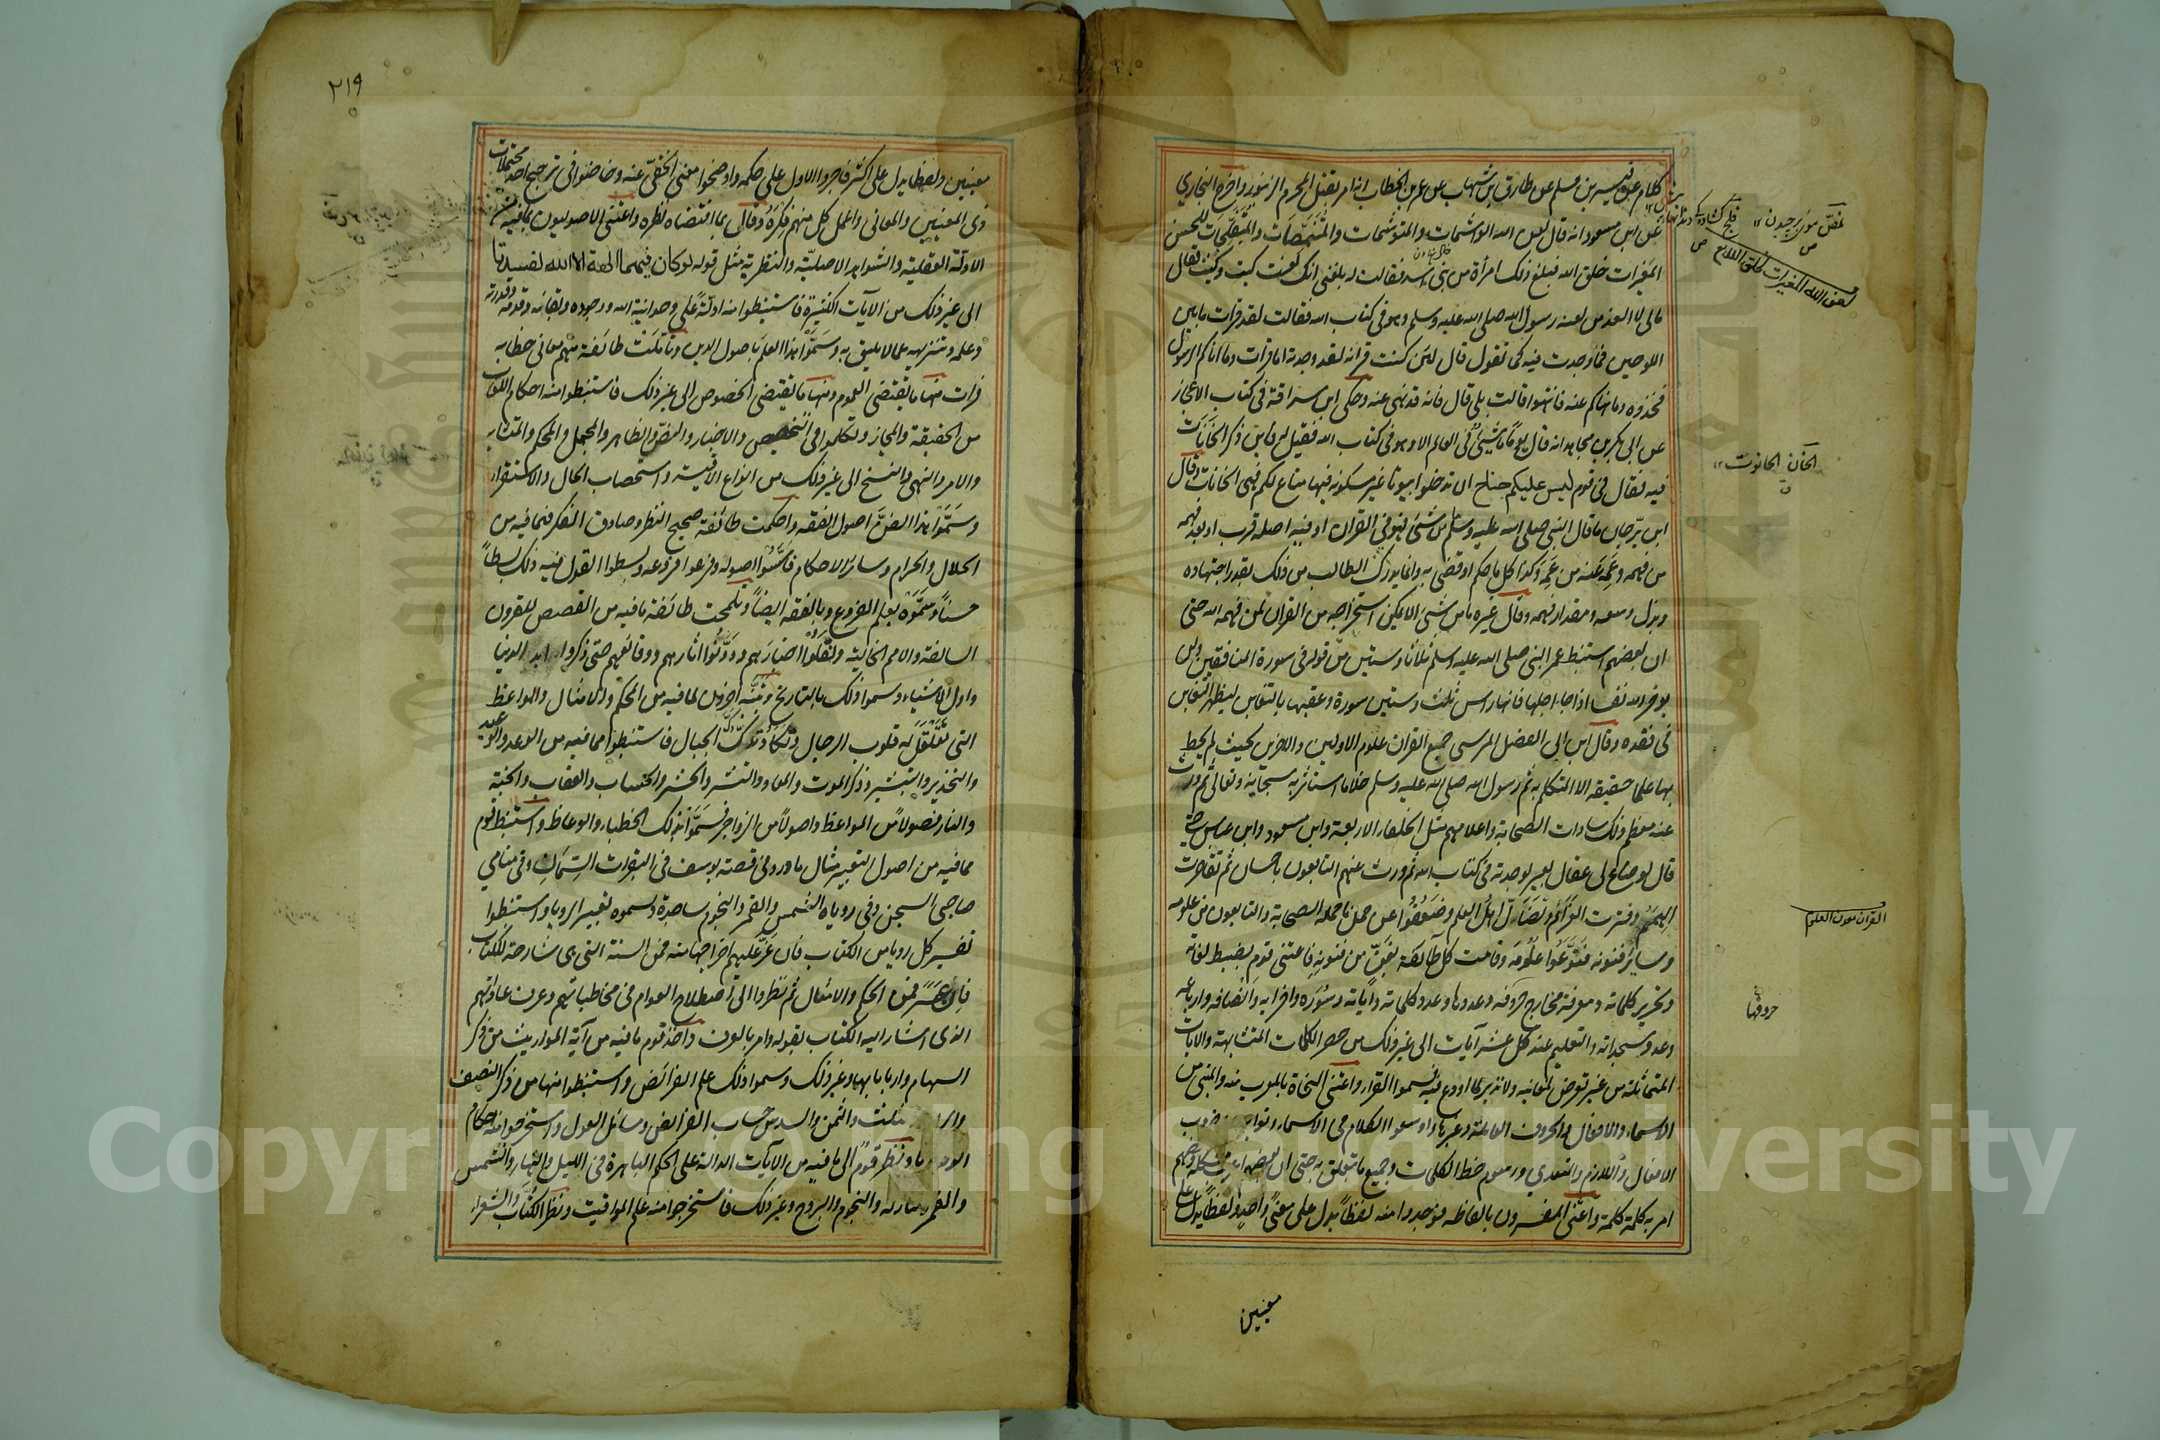 كلام عن قيس بن مسلم عن طارق بن شهاب عن عمر بن الخطاب انه امر بقتل المحرم الزنبور واخرج البخاري
عن ابن مسعود انه قال لعن الله الواشمات والمتوشمات والمتنمصات والمتفلجات للحسن
المغيرات خلق الله فبلغ ذلك امرأة من بني اسد فقالت له بلغني انك لعنت كيت وكيت فقال
مالي لا العن من لعنه رسول الله صلى الله عليه وسلم وهو في كتاب الله فقالت لقد قرات ما بين
اللوحين فما وجدت فيه كما تقول قال لئن كنت قرأته لقد وجدته اما قرات وما اتاكم الرسول
فخذوه وما نهاكم عنه فانتهوا قالت بلى قال فانه قد نهى عنه وحكى ابن سراقة في كتاب الاعجاز
عن ابي بكر بن مجاهد انه قال يوما ما شيئ في العالم الا وهو في كتاب الله فقيل له فاين ذكر الخانات
فيه فقال في قوله ليس عليكم جناح ان تدخلوا بيوتا غير مسكونة فيها متاع لكم فهي الخانات وقال
ابن برجان ما قال النبي صلى الله عليه وسلم من شئ فهو في القران او فيه اصله قرب او بعد فهمه
من فهمه وعمه عنه من عمه وكذا كل ما حكم او قضى به وانما يدرك الطالب من ذلك بقدر اجتهاده
وبذل وسعه ومقدار فهمه وقال غيره ما من شئ الا يمكن استخراجه من القران لمن فهمه الله حتى
ان بعضهم استنبط عمر النبي صلى الله عليه وسلم ثلاثا وستين من قوله في سورة المنافقين ولن
يؤخر الله نفسا اذا جاء اجلها فانها راس ثلث وستين سورة وعقبها بالتغابن ليظهر التغابن
في فقده وقال ابن ابي الفضل المرسي جمع القران علوم الاولين والاخرين بحيث لم يحط
بها علما حقيقة الا المتكلم به ثم رسول الله صلى الله عليه وسلم خلا ما استاثر به سبحانه وتعالى ثم ورث
عنه معظم ذلك سادات الصحابة واعلامهم مثل الخلفاء الاربعة وابن مسعود وابن عباس حتى
قال لو ضاع لي عقال بعير لوجدته في كتاب الله ثم ورث عنهم التابعون باحسان ثم تقاصرت
الهمم وفترت العزائم وتضاءل اهل العلم وضعفوا عن حمل ما حمله الصحابة والتابعون من علومه
وسائر فنونه فنوعوا علومه وقامت كل طائفة بفن من فنونه فاعتنى قوم بضبط لغاته
وتحرير كلماته ومعرفة مخارج حروفه وعددها وعدد كلماته واياته وسوره واحزابه وانصافه وارباعه
وعدد سجداته والتعليم عند كل عشر آيات الى غير ذلك من حصر الكلمات المتشابهة والايات
المتماثلة من غير تعرض لمعانيه ولا تدبر لما اودع فيه فسموا القراء واعتنى النحاة بالمعرب منه والمبني من
الاسماء والافعال والحروف العاملة وغيرها واوسعوا الكلام في الاسماء وتوابعها وضروب
الافعال واللازم والمتعدي ورسوم خط الكلمات وجميع ما يتعلق به حتى ان بعضهم اعرب مشكله وبعضهم
اعربه كلمة كلمة واعتنى المفسرون بالفاظه فوجدوا منه لفظا يدل على معنى واحد ولفظا يدل على
معنيين
لعن الله المغيرات لخلق الله
الخان الحانوت ١٢
القران معدن العلوم
حروفها
٢١٩
معنيين ولفظا يدل على اكثر فاجروا الاول على حكمه واوضحوا معنى الخفي منه وخاضوا في ترجيح احد محتملات
ذي المعنيين والمعاني واعمل كل منهم فكره وقال بما اقتضاه نظره واعتنى الاصوليون بما فيه من
الادلة العقلية والشواهد الاصلية والنظرية مثل قوله لو كان فيهما الهة الا الله لفسدتا
الى غير ذلك من الايات الكثيرة فاستنبطوا منه ادلة على وحدانية الله ووجوده وبقائه وقدمه وقدرته
وعلمه وتنزيهه عما لا يليق به وسموا هذا العلم باصول الدين وتاملت طائفة منهم معاني خطابه
فرات منها ما يقتضى العموم ومنها ما يقتضي الخصوص الى غير ذلك فاستنبطوا منه احكام اللغات
من الحقيقة والمجاز وتكلموا في التخصيص والاخبار والنص والظاهر والمجمل والمحكم والمتشابه
والامر والنهي والنسخ الى غير ذلك من انواع الاقيسة واستصحاب الحال والاستقراء
وسموا هذا الفن اصول الفقه واحكمت طائفة صحيح النظر وصادق الفكر فيما فيه من
الحلال والحرام وسائر الاحكام فاسسوا اصوله وفرعوا فروعه وبسطوا القول فيه ذلك بسطا
حسنا وسموه بعلم الفروع وبالفقه ايضا وتلمحت طائفة ما فيه من القصص للقرون
السالفة والامم الخالية ونقلوا اخبارهم ودونوا اثارهم ووقائعهم حتى ذكروا بدء الدنيا
واول الاشياء وسموا ذلك بالتاريخ وتنبه اخرون لما فيه من الحكم والامثال والمواعظ
التي تقلقل له قلوب الرجال وتكاد تدكدك الجبال فاستنبطوا مما فيه من الوعد والوعيد
والتحذير والتبشير وذكر الموت والمعاد والنشر والحشر والحساب والعقاب والجنة
والنار فصولا من المواعظ واصولا من الزواجر فسموا بذلك الخطباء والوعاظ واستنبط قوم
مما فيه من اصول التعبير مثال ما ورد في قصة يوسف في البقرات السمان وفي منامي
صاحبي السجن وفي روياه الشمس والقمر والنجوم ساجدة وسموه تعبير الرويا واستنبطوا
تفسير كل رويا من الكتاب فان عز عليهم اخراجها منه فمن السنة التي هي شارحة للكتاب
فان عسر فمن الحكم والامثال ثم نظروا الى اصطلاح العوام في مخاطباتهم وعرف عاداتهم
الذي اشار اليه الكتاب بقوله وامر بالعرف واخذ قوم ما فيه من آية المواريث من ذكر
السهام واربابها وغير ذلك وسموا ذلك علم الفرائض واستنبطوا منها من ذكر النصف
والثلث والثمن والسدس حساب الفرائض ومسائل العول واستخرجوا منه احكام
الوصايا ونظر قوم الى ما فيه من الآيات الدالة على الحكم الباهرة في الليل والنهار والشمس
والقمر ومنازله والنجوم والبروج وغير ذلك فاستخرجوا منه علم المواقيت ونظر الكتاب والشعراء
Copyright © King Saud University